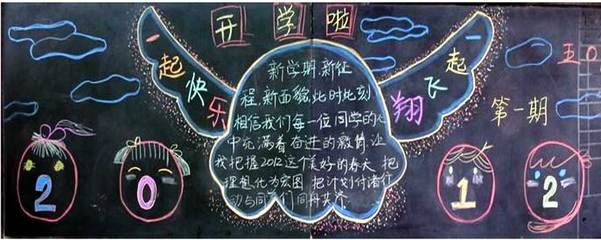 开学啦
一起快乐
一起飞翔
五〇
第一期
新学期,新征
程,新面貌,此时此刻
相信我们每一位同学的心
中充满着奋进的激情,让
我们把握2012这个美好的春天,把
理想化为宏图,把计划付诸行
动与同学们同舟共济
2 0 1 2